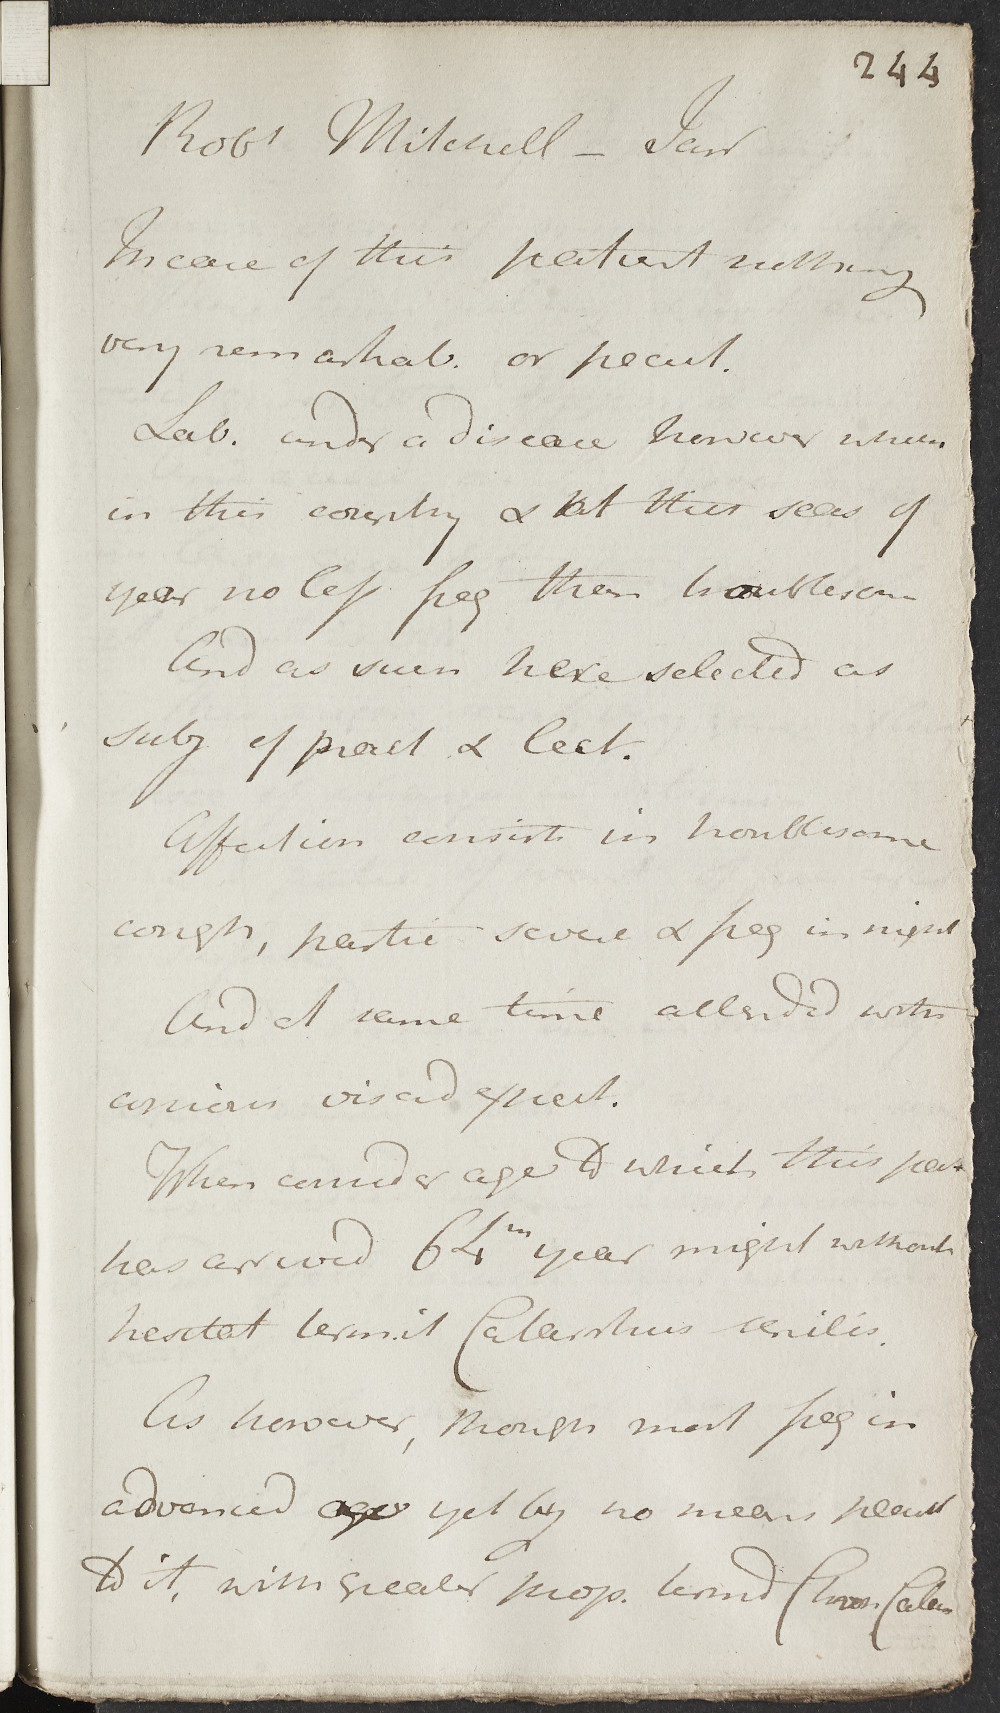 244
Robt Mitchell – Janr
In case of this patient nothing
very remarkab. or pecul.
Lab. under a disease however when
in this country & at this seas of
year no less freq than troublesom
And as such here selected as
subj of pract & lect.
Affection consists in troublesome
cough, partic severe & freq in night
And at same time attended with
copious viscid expect.
When consider age to which this pat
has arrived 64th year might without
hesitat term it Catarrhus senilis.
As however, though most freq in
advanced age yet by no means pecul
to it, with greater prop. termd Chron Catar